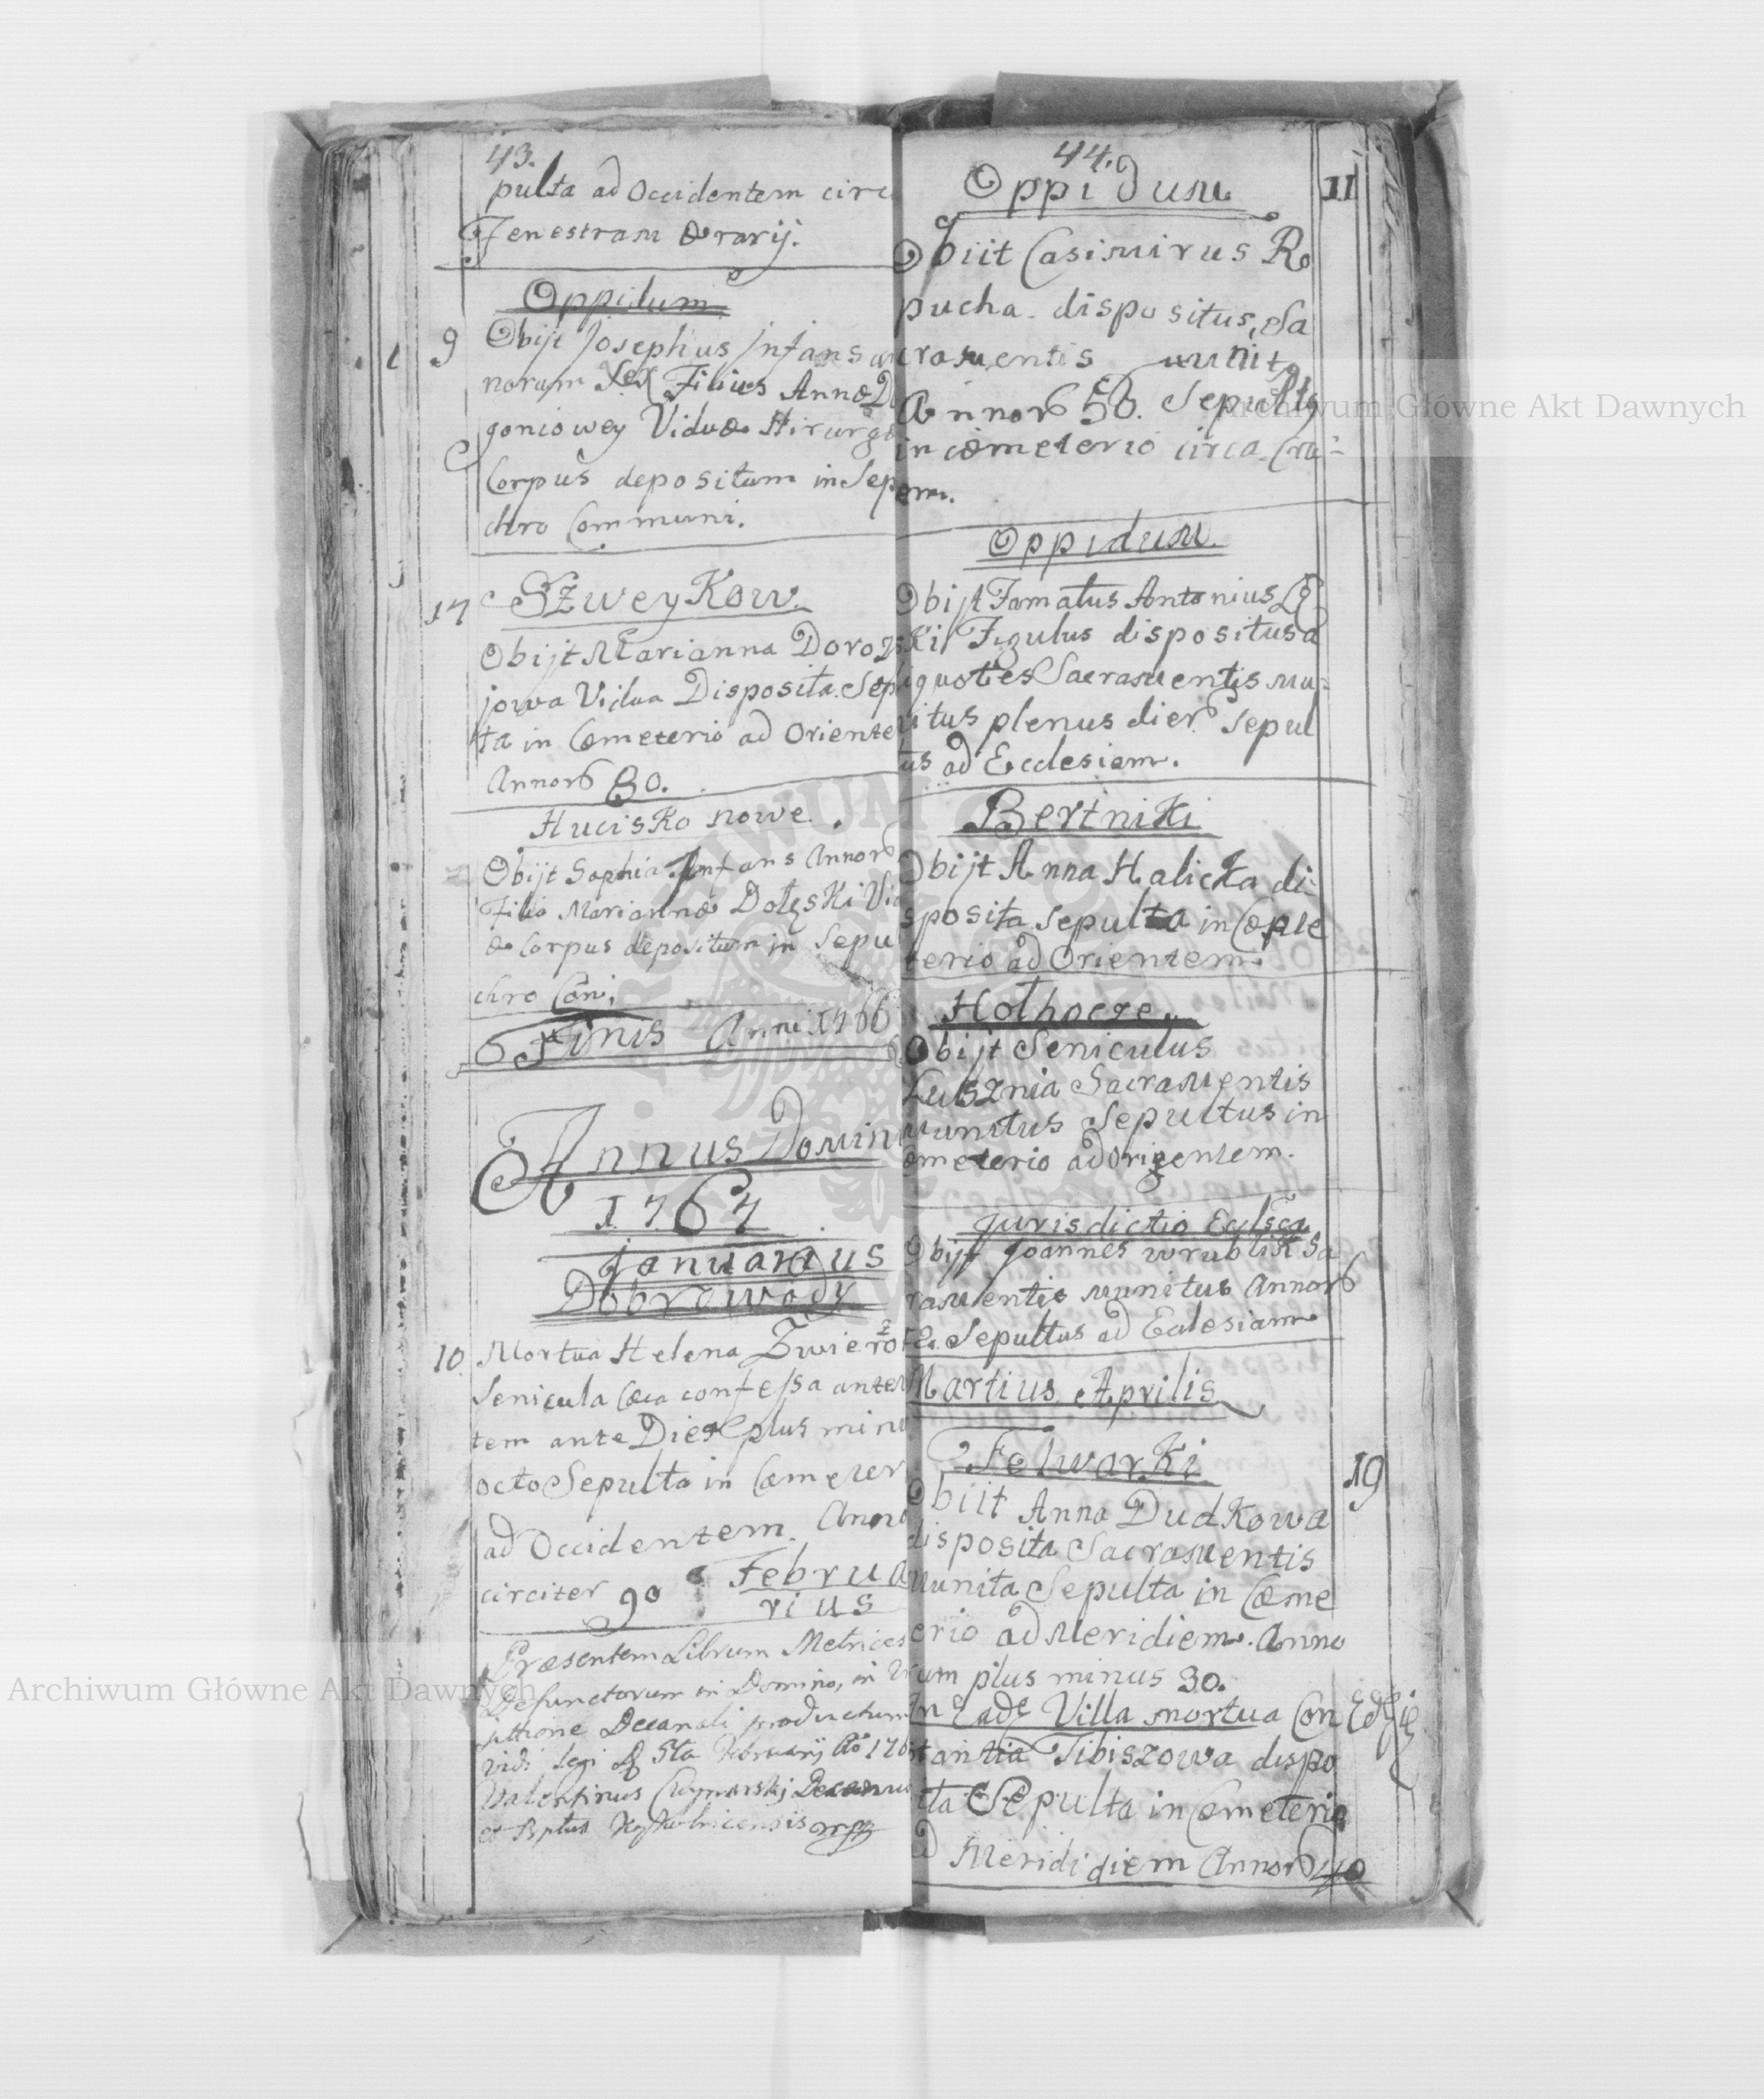 43.
pulta ad Occidentem circ
Fenestram Ærarij.
Oppidum
9 Obijt Josephus Infans an
norum Sex Filius Annæ
goniowey Viduæ Hirurgi
Corpus depositum in Sep
chro Communi.
17 Szweykow
Obijt Marianna Doroz
jowa Vidua Disposita Sep
ta in Cæmeterio ad Oriente
Annor 80.
Hucisko nowe.
Obijt Sophia Infans Annor
Filia Mariannæ Dolęski Vi
æ Corpus depositum in Sepu
chro Coni
Finis Anni 1766
Annus Domin
1767
Januarius
Dobrowody
10 Mortua Helena
Senicula Cæca confessa
tem ante Dies plus minu
octo Sepulta in Cæmeter
ad Occidentem. Anno
circiter 90 Februa
rius
Præsentem Librum Metrices
Defunctorum in Domino, in
Decanali productum
vidi legi 5ta Februarij Ao 176
Valentinus Decanus
et
44.
Oppidum 11
Obiit Casimirus Ro
pucha dispositus, Sa
cramentis munitg
Annor 50. Sepultg
in cæmeterio circa Cru=
em.
Oppidum.
Obijt Famatus Antonius
ki Figulus dispositus a
iquoties Sacramentis mu=
itus plenus dier Sepul
us ad Ecclesiam.
Bertniki
Obijt Anna Halicka di
sposita Sepulta in Cæme
terio ad Orientem.
Hothocze
Obijt Seniculus
Sacramentis
munitus Sepultus in
æmeterio ad Orientem.
Jurisdictio Eclsca
Obijt Joannes wrublik Sa
ramentis munitus Annor
Sepultus ad Eclesiam
Martius Aprilis
Folwarki 19
Obiit Anna Dudkowa
disposita Sacramentis
munita Sepulta in Cæme
erio ad Meridiem. Anno
um plus minus 30.
In eade Villa mortua Con
antia Tibiszowa dispo
ita Sepulta in Cæmeterio
d Merididiem Annor 40
Archiwum Główne Akt Dawnych
Archiwum Główne Akt Dawnych